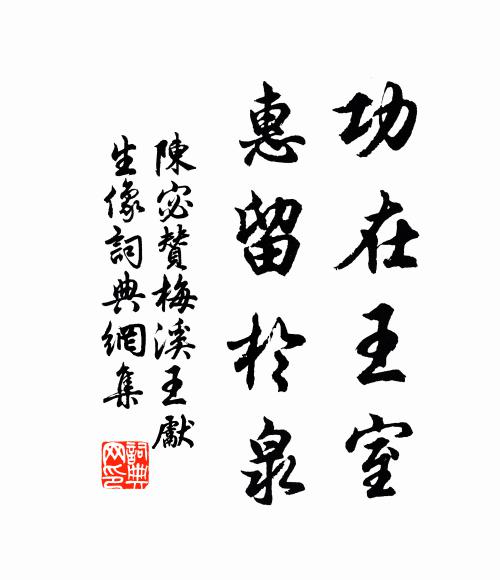 功在王室
惠留於泉
陳宓贊梅溪王獻
生像詞典網集
詞典
网印